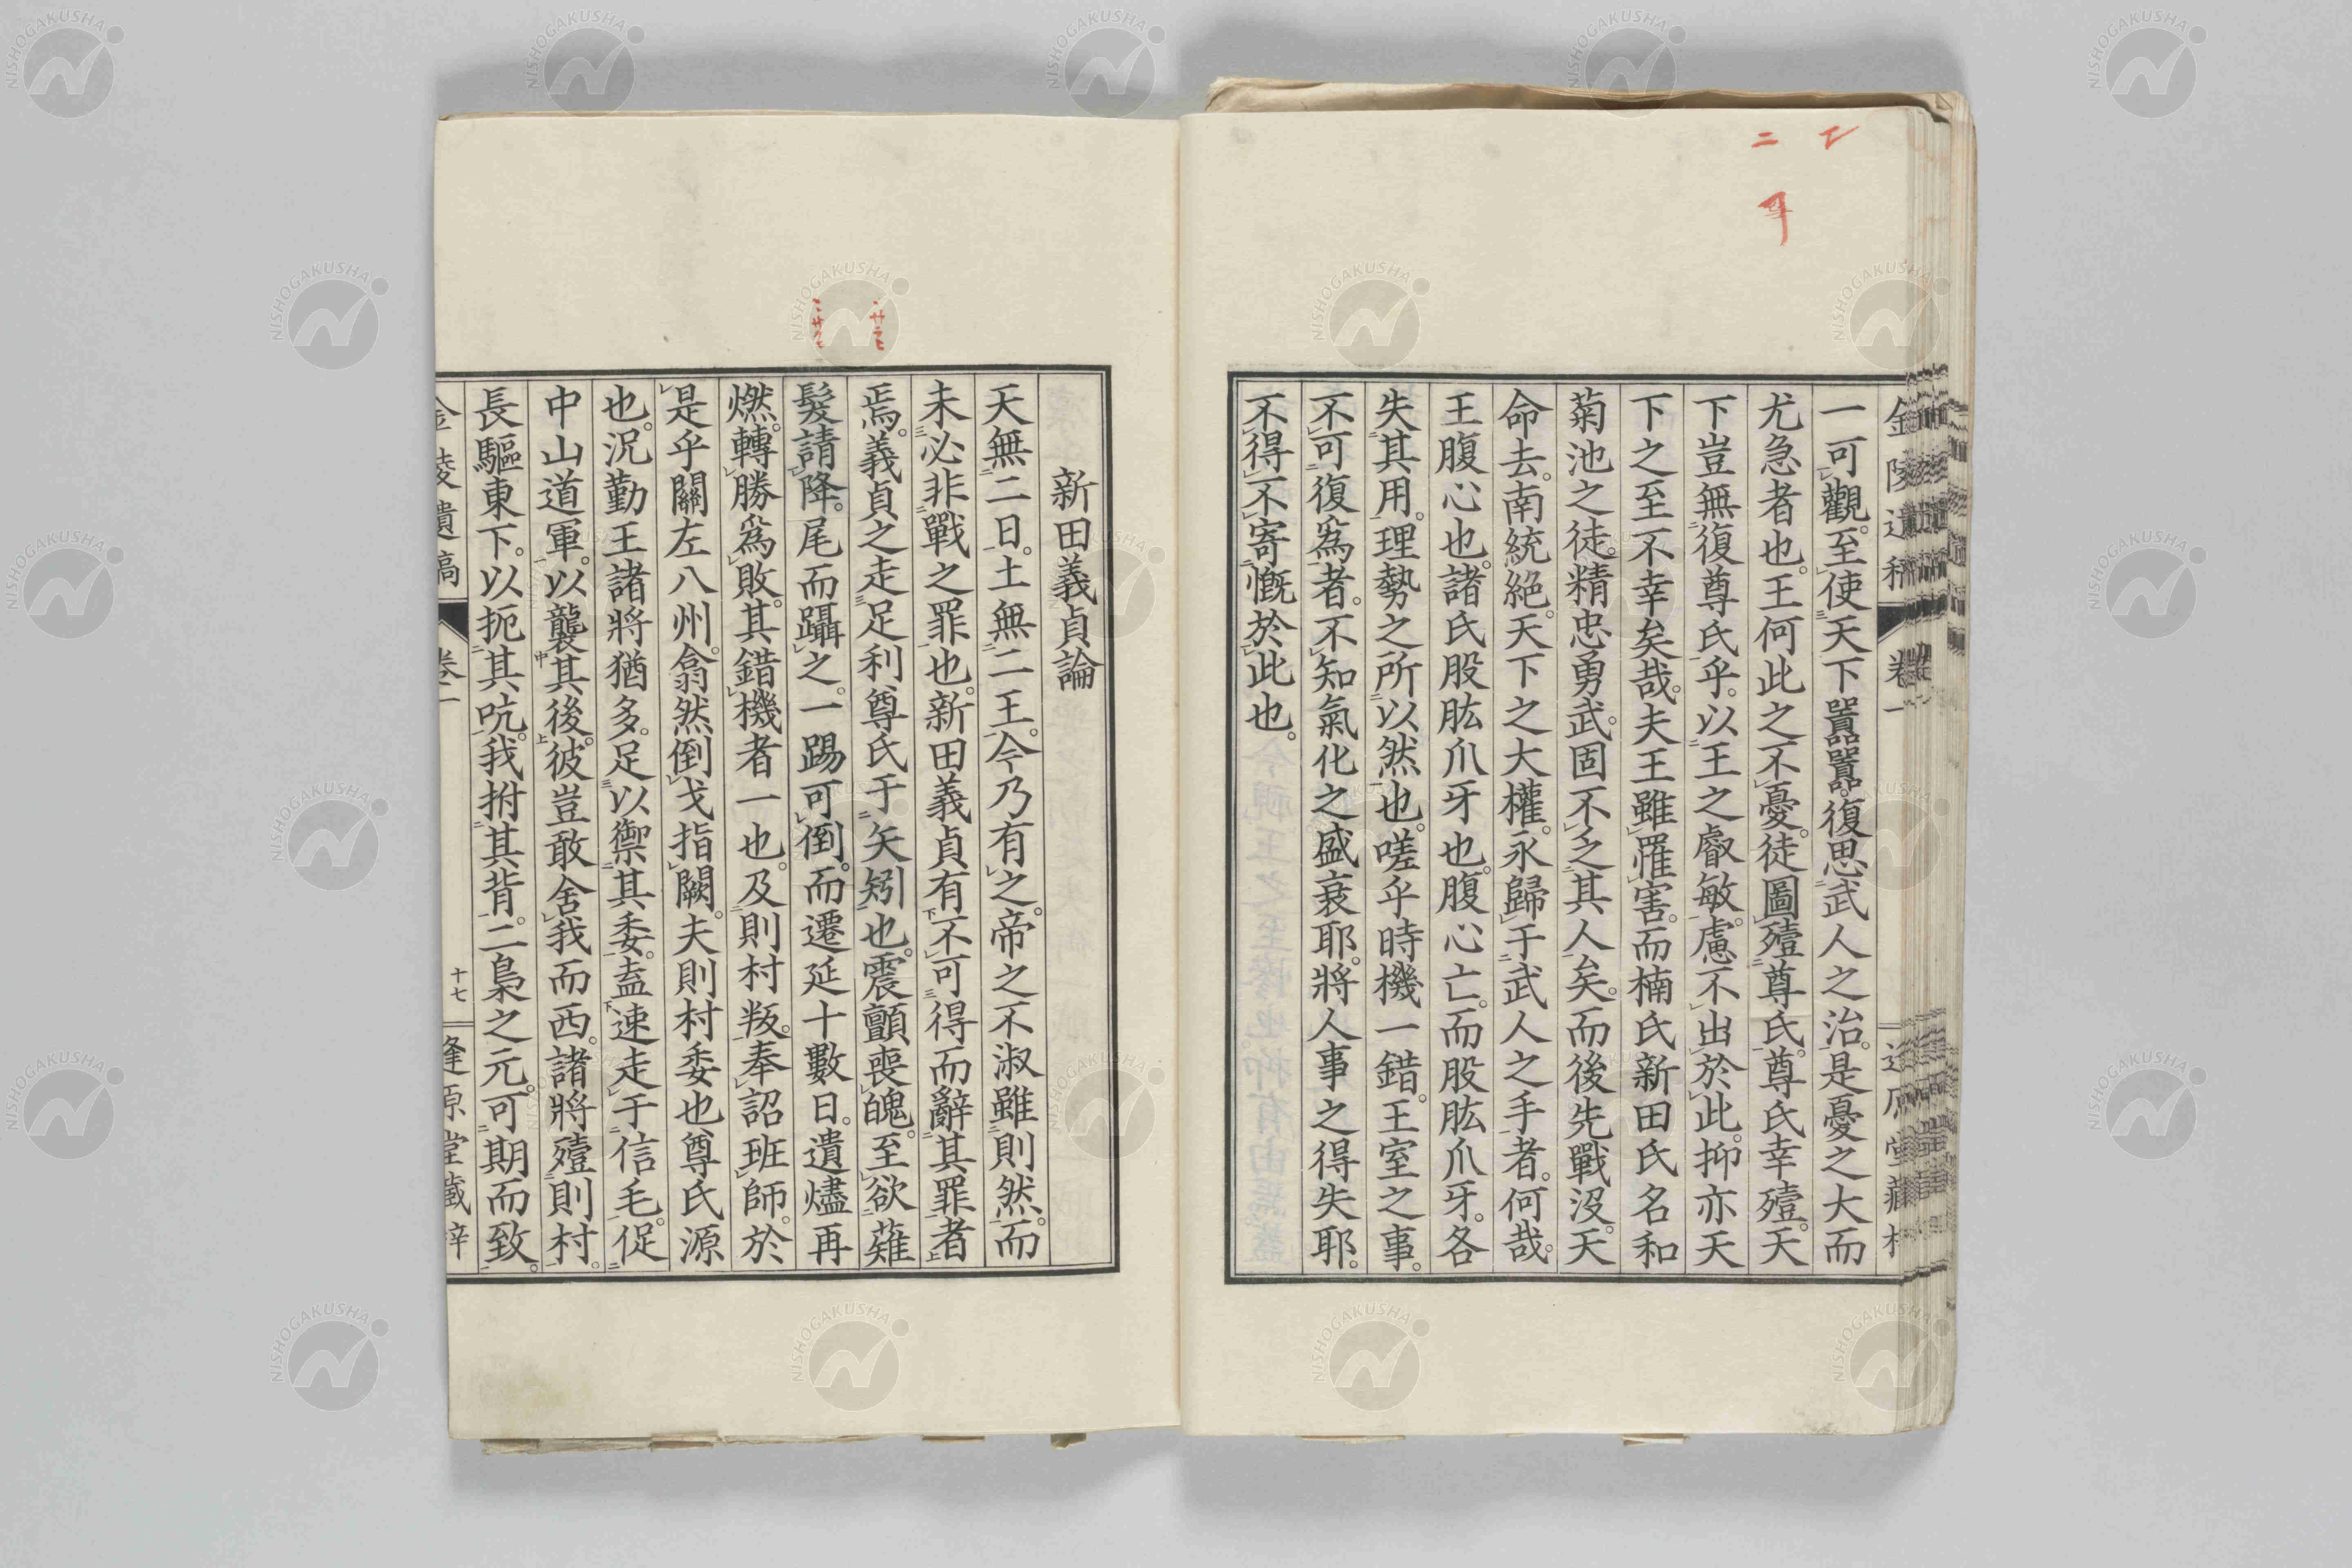 金陵遺稿 卷一
一可觀。至使天下囂囂。復思武人之治。是憂之大而
尤急者也。王何此之不憂。徒圖殪尊氏。尊氏幸殪。天
下豈無復尊氏乎。以王之叡敏。慮不出於此。抑亦天
下之至不幸矣哉。夫王雖罹害。而楠氏新田氏名和
菊池之徒。精忠勇武。固不乏其人矣。而後先戰沒。天
命去。南統絕。天下之大權。永歸于武人之手者。何哉。
王腹心也。諸氏股肱爪牙也。腹心亡。而股肱爪牙。各
失其用。理勢之所以然也。嗟乎時機一錯。王室之事。
不可復爲者。不知氣化之盛衰耶。將人事之得失耶。
不得不寄慨於此也。
新田義貞論
天無二日。土無二王。今乃有之。帝之不淑雖則然。而
未必非戰之罪也。新田義貞有不可得而辭其罪者
焉。義貞之走足利尊氏于矢矧也。震顫喪魄。至欲薙
髮請降。尾而躡之。一踢可倒。而遷延十數日。遺燼再
燃。轉勝爲敗。其錯機者一也。及則村叛。奉詔班師。於
是乎關左八州。翕然倒戈指闕。夫則村委也尊氏源
也。況勤王諸將猶多。足以禦其委。盍速走于信毛。促
中山道軍。以襲其後。彼豈敢舍我而西。諸將殪則村。
長驅東下。以扼其吭。我拊其背。二梟之元。可期而致。
金陵遺稿 卷一 十七 逢原堂藏梓
NISHOGAKUSHA